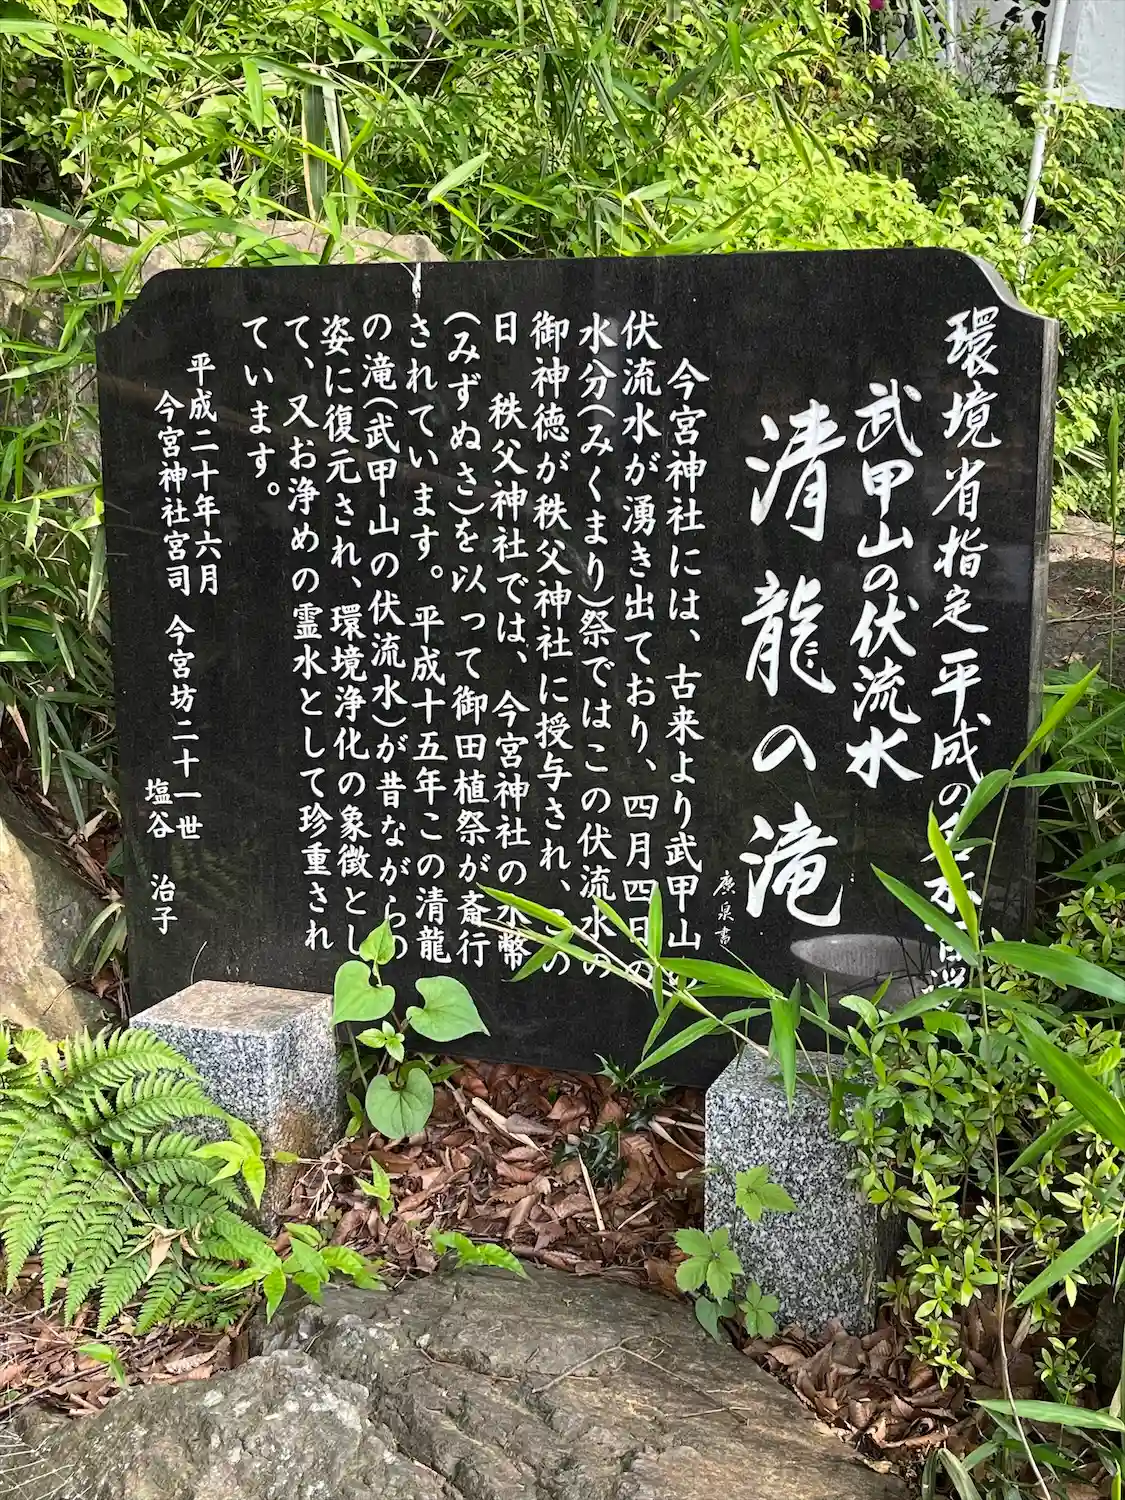 環境省指定 平成の名水百選
武甲山の伏流水
清龍の滝
廣泉書
今宮神社には、古来より武甲山
伏流水が湧き出ており、四月四日の
水分(みくまり)祭ではこの伏流水の
御神徳が秩父神社に授与され、この
日 秩父神社では、今宮神社の水幣
(みずぬさ)を以って御田植祭が斎行
されています。平成十五年この清龍
の滝(武甲山の伏流水)が昔ながらの
姿に復元され、環境浄化の象徴とし
て、又お浄めの霊水として珍重され
ています。
平成二十年六月
今宮神社宮司 今宮坊二十一世
塩谷 治子